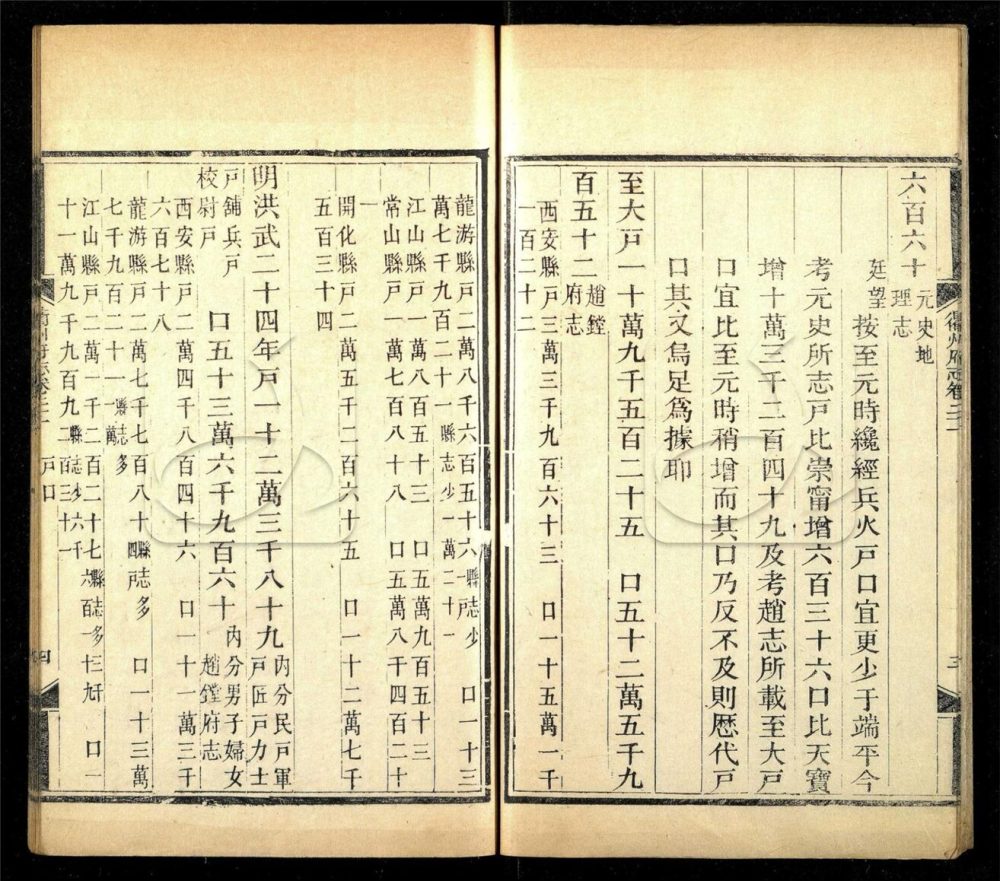 六百六十元史地
理志
廷望 按至元時纔經兵火戶口宜更少于端平今
考元史所志戶比崇甯增六百三十六口比天寶
增十萬三千二百四十九及考趙志所載至大戶
口宜比至元時稍增而其口乃反不及則歷代戶
口其又烏足爲據耶
至大戶一十萬九千五百二十五 口五十二萬五千九
百五十二趙鏜
府志
西安縣戶三萬三千九百六十三 口一十五萬一千
一百二十二
衢州府志卷二十二
三
龍游縣戶二萬八千六百五十六縣志少一戶 口一十三
萬七千九百二十縣志少一萬二十一
江山縣戶一萬八百五十三 口五萬九百五十三
常山縣戶一萬七百八十八 口五萬八千四百二十
一
開化縣戶二萬五千二百六十五 口一十二萬七千
五百三十四
明洪武二十四年戶一十二萬三千八十九內分民戶軍
戶匠戶力士
戶舖兵戶
校尉戶 口五十三萬六千九百六十內分男子婦女
趙鏜府志
西安縣戶二萬四千八百四十六 口一十一萬三千
六百七十八
龍游縣戶二萬七千七百八十四縣志多四戶 口一十三萬
七千九百二十一縣志多一萬
江山縣戶二萬一千二百二十七縣志多六百一十三 口一
十一萬九千九百九
戶口
四